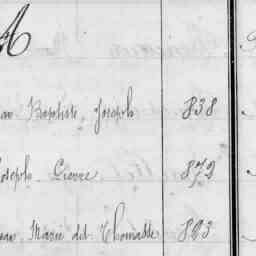 A
Baptiste, Joseph 838
Joseph Pierre 872
Marie dit Thomaste 823